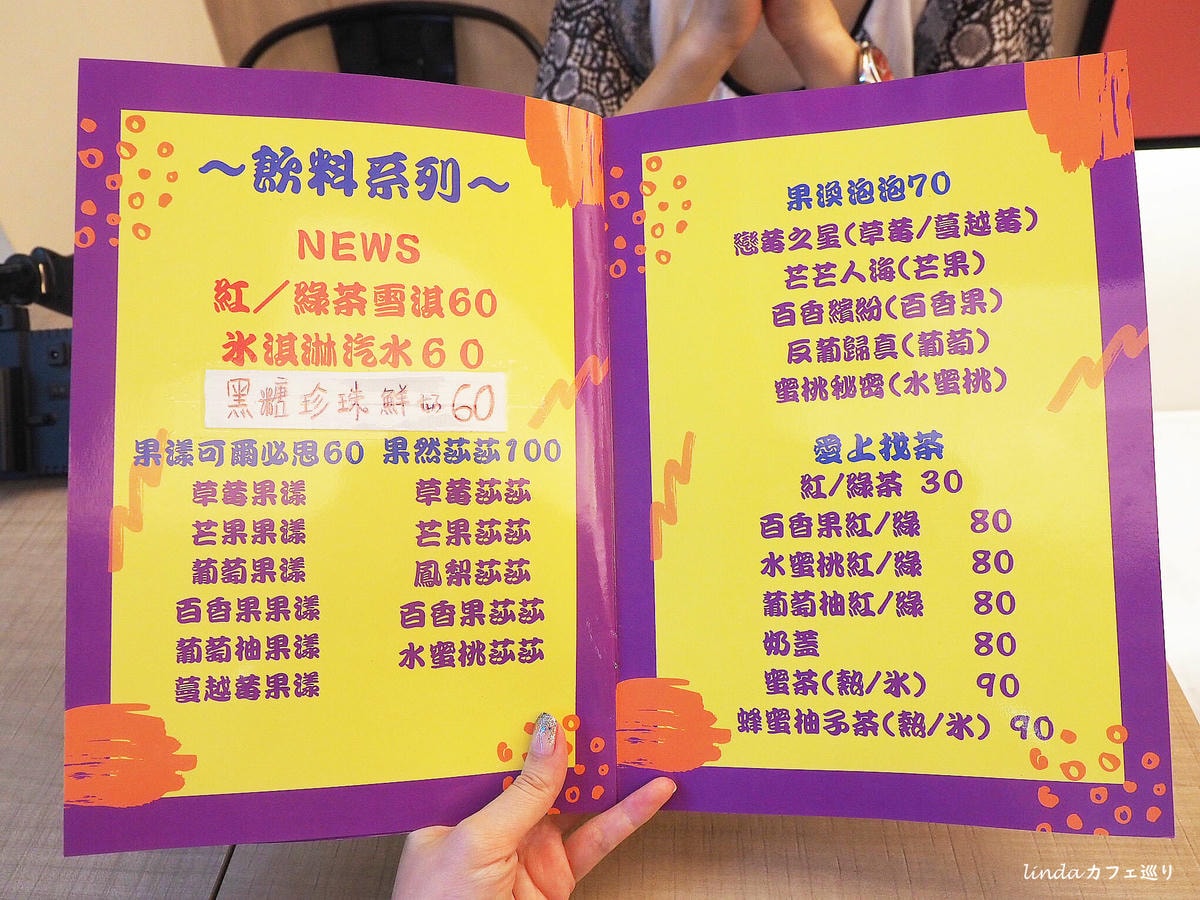 ～飲料系列～
NEWS
紅／綠茶雪淇60
氷淇淋汽水60
黑糖珍珠鮮奶60
果漾可爾必思60
草莓果漾
芒果果漾
葡萄果漾
百香果果漾
葡萄柚果漾
蔓越莓果漾
果然莎莎100
草莓莎莎
芒果莎莎
鳳梨莎莎
百香果莎莎
水蜜桃莎莎
果漾泡泡70
戀莓之星(草莓/蔓越莓)
芒芒人海(芒果)
百香繽紛(百香果)
反葡歸真(葡萄)
蜜桃秘密(水蜜桃)
愛上找茶
紅/綠茶 30
百香果紅/綠 80
水蜜桃紅/綠 80
葡萄柚紅/綠 80
奶蓋 80
蜜茶(熱/氷) 90
蜂蜜柚子茶(熱/氷) 90
lindaカフェ巡り